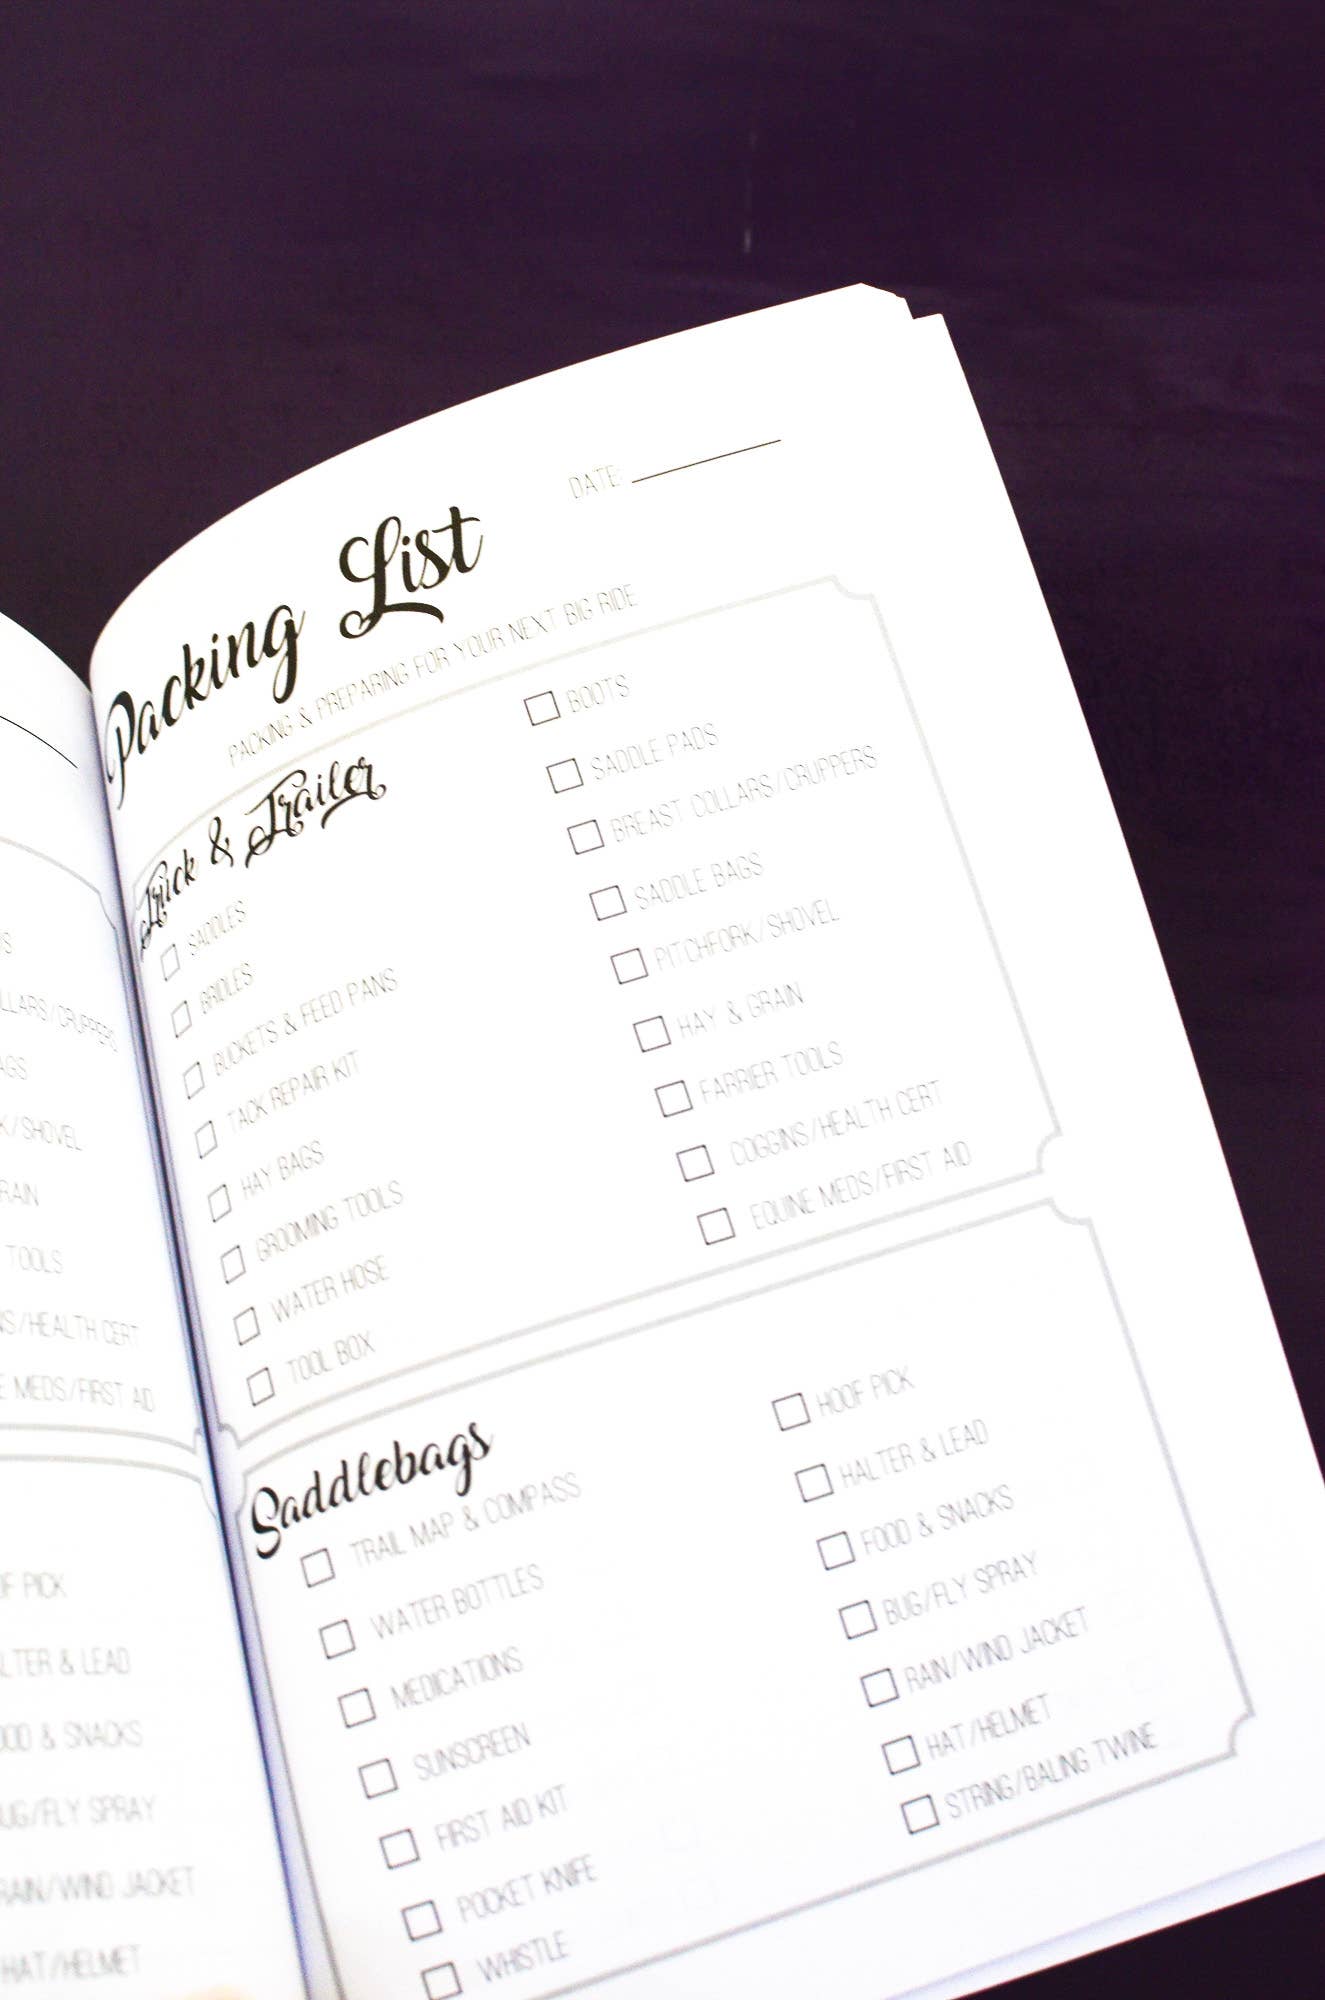 'S
LLARS/CRUPPERS
AGS
K/SHOVEL
RAIN
TOOLS
NS/HEALTH CERT
E MEDS/FIRST AID
OF PICK
ALTER & LEAD
OOD & SNACKS
UG/FLY SPRAY
RAIN/WIND JACKET
HAT/HELMET
DATE:
Packing List
PACKING & PREPARING FOR YOUR NEXT BIG RIDE
Truck & Trailer
SADDLES
BRIDLES
BUCKETS & FEED PANS
TACK REPAIR KIT
HAY BAGS
GROOMING TOOLS
WATER HOSE
TOOL BOX
BOOTS
SADDLE PADS
BREAST COLLARS/CRUPPERS
SADDLE BAGS
PITCHFORK/SHOVEL
HAY & GRAIN
FARRIER TOOLS
COGGINS/HEALTH CERT
EQUINE MEDS/FIRST AID
Saddlebags
TRAIL MAP & COMPASS
WATER BOTTLES
MEDICATIONS
SUNSCREEN
FIRST AID KIT
POCKET KNIFE
WHISTLE
HOOF PICK
HALTER & LEAD
FOOD & SNACKS
BUG/FLY SPRAY
RAIN/WIND JACKET
HAT/HELMET
STRING/BALING TWINE